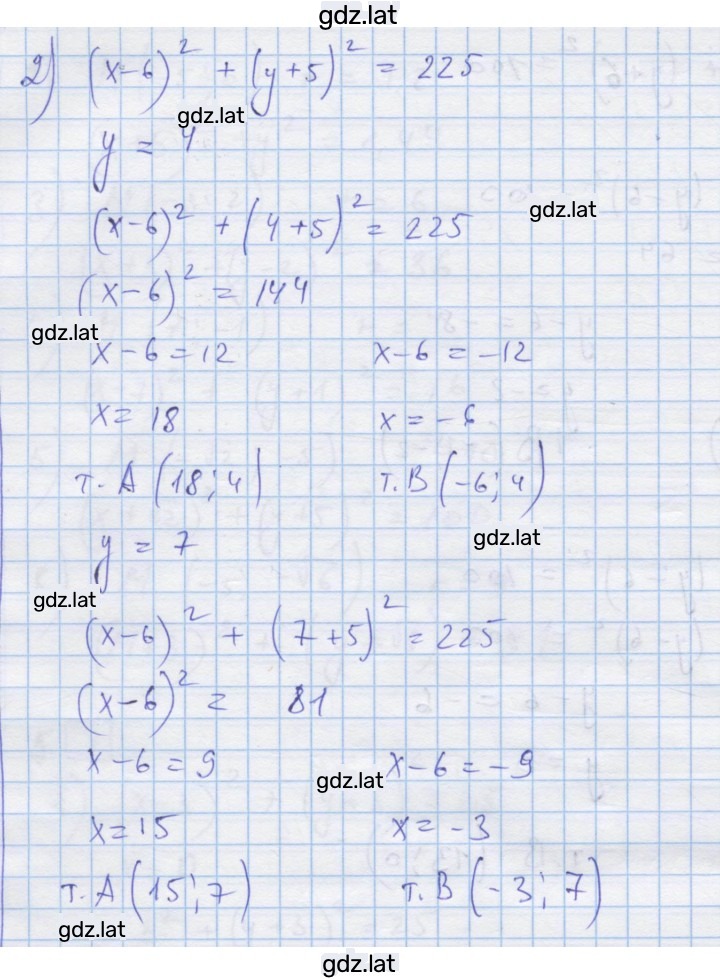 gdz.lat
2) (x-6)² + (y+5)² = 225
gdz.lat
y = 4
(x-6)² + (4+5)² = 225
gdz.lat
(x-6)² = 144
gdz.lat
x-6 = 12 x-6 = -12
x = 18 x = -6
т. A (18; 4) т. B (-6; 4)
gdz.lat
y = 7
gdz.lat
(x-6)² + (7+5)² = 225
(x-6)² = 81
x-6 = 9 x-6 = -9
gdz.lat
x = 15 x = -3
т. A (15; 7) т. B (-3; 7)
gdz.lat
gdz.lat